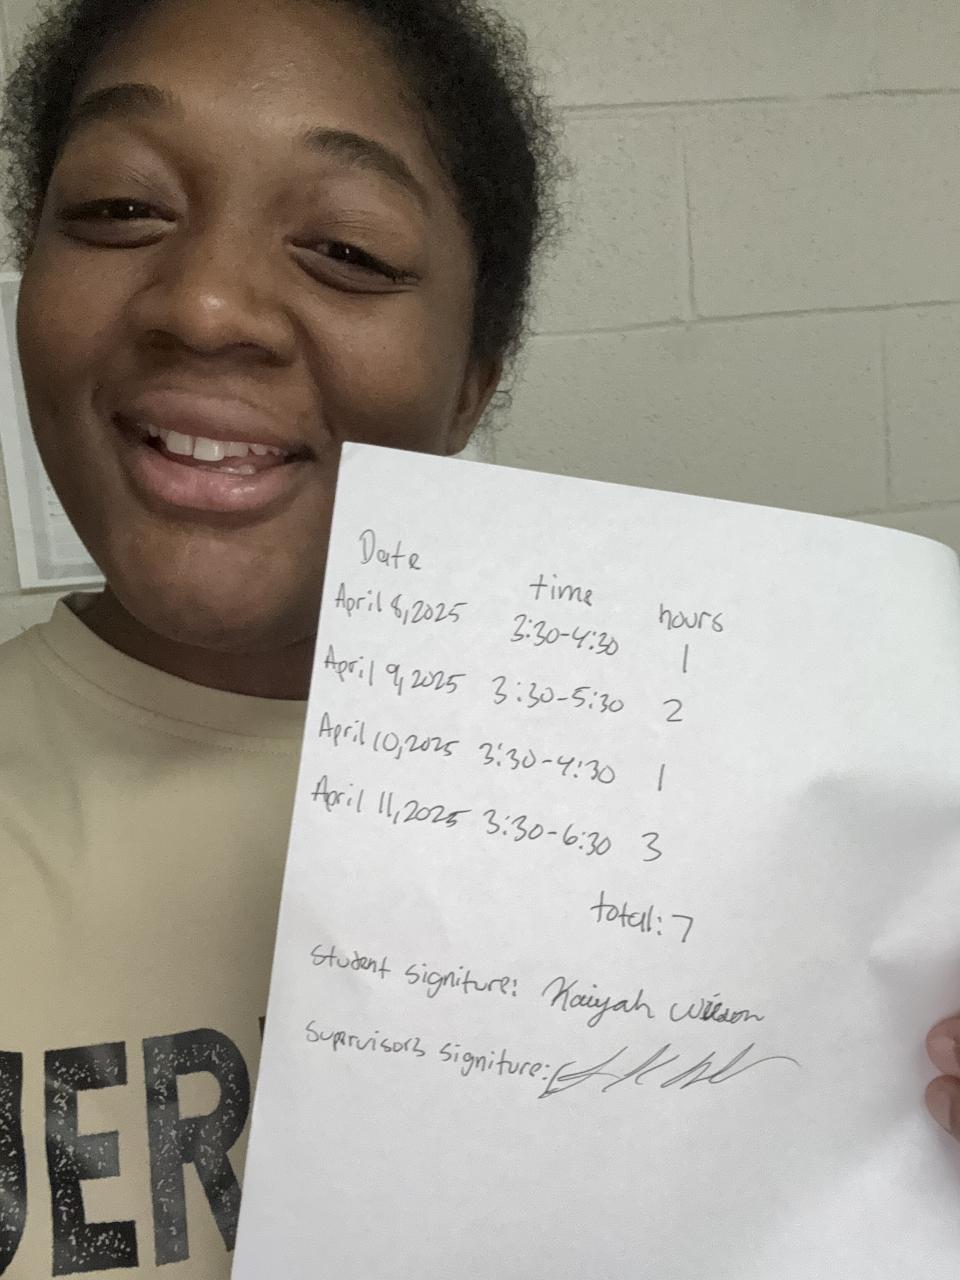 Date time hours
April 8, 2025 3:30-4:30 1
April 9, 2025 3:30-5:30 2
April 10, 2025 3:30-4:30 1
April 11, 2025 3:30-6:30 3
total: 7
Student signiture: Kaiyah Wilson
Supervisors signiture:
ER